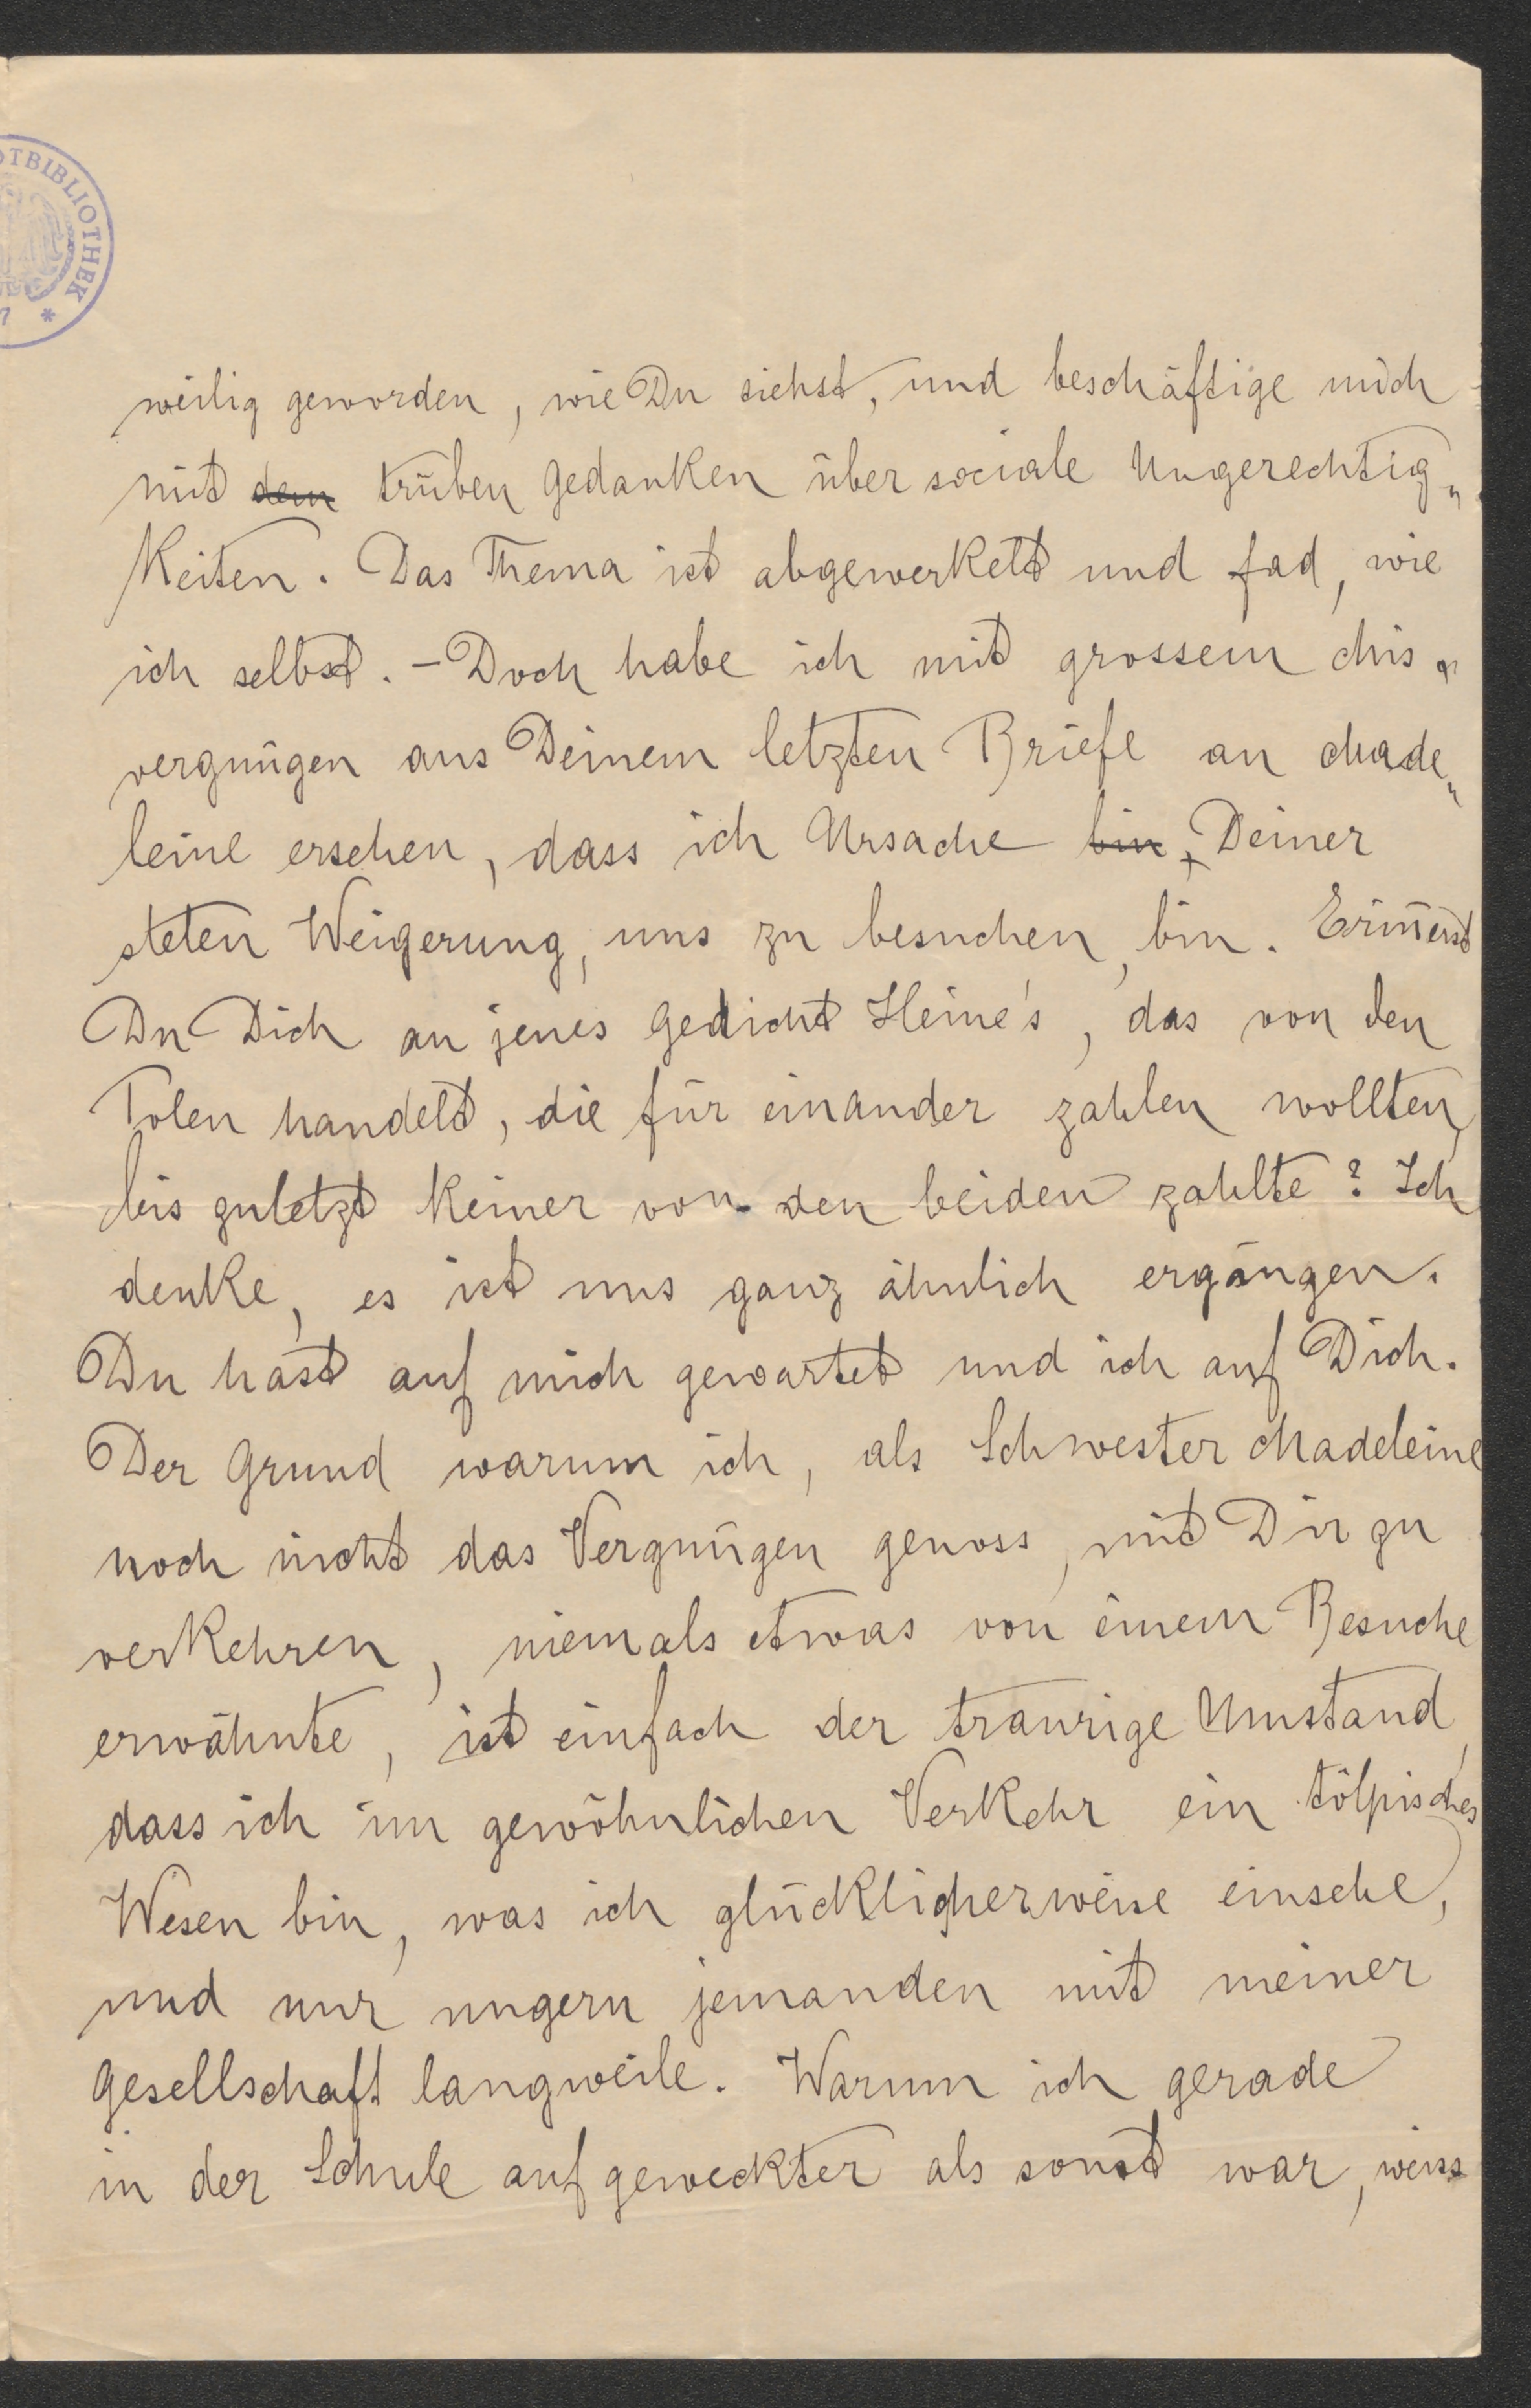 OTBIBLIOTHEK
7 *
weilig geworden, wie Du siehst, und beschäftige mich
mit ~~den~~ trüben Gedanken über sociale Ungerechtig„
keiten. Das Thema ist abgewerkelt und fad, wie
ich selbst. – Doch habe ich mit grossem Mis„
vergnügen aus Deinem letzten Briefe an Made„
leine ersehen, dass ich Ursache ~~bin~~, Deiner
steten Weigerung, uns zu besuchen, bin. Erin̄erst
Du Dich an jenes Gedicht Heine's, das von den
Polen handelt, die für einander zahlen wollten,
bis zuletzt keiner von den beiden zahlte? Ich
denke, es ist uns ganz ähnlich ergangen.
Du hast auf mich gewartet und ich auf Dich.
Der Grund warum ich, als Schwester Madeleine
noch nicht das Vergnügen genoss, mit Dir zu
verkehren, niemals etwas von einem Besuche
erwähnte, ist einfach der traurige Umstand,
dass ich im gewöhnlichen Verkehr ein tölpisches
Wesen bin, was ich glücklicherweise einsehe,
und nur ungern jemanden mit meiner
Gesellschaft langweile. Warum ich gerade
in der Schule aufgeweckter als sonst war, weiss